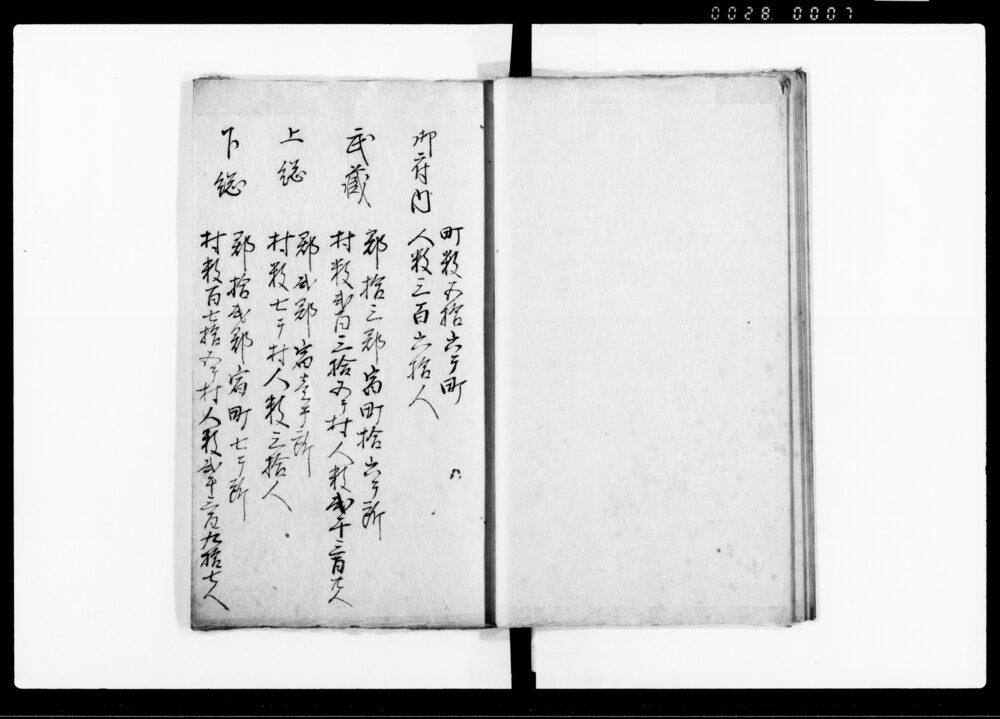 0028 0007
御府内
町数五拾六ケ町
人数三百六拾人
武蔵
郡拾三郡宿町拾六ケ所
村数弐百三拾五ケ村人数弐千三百
上総
郡弐郡宿壱ケ所
村数七ケ村人数三拾人
下総
郡拾弐郡宿町七ケ所
村数百七拾五ケ村人数弐千三百九拾七人